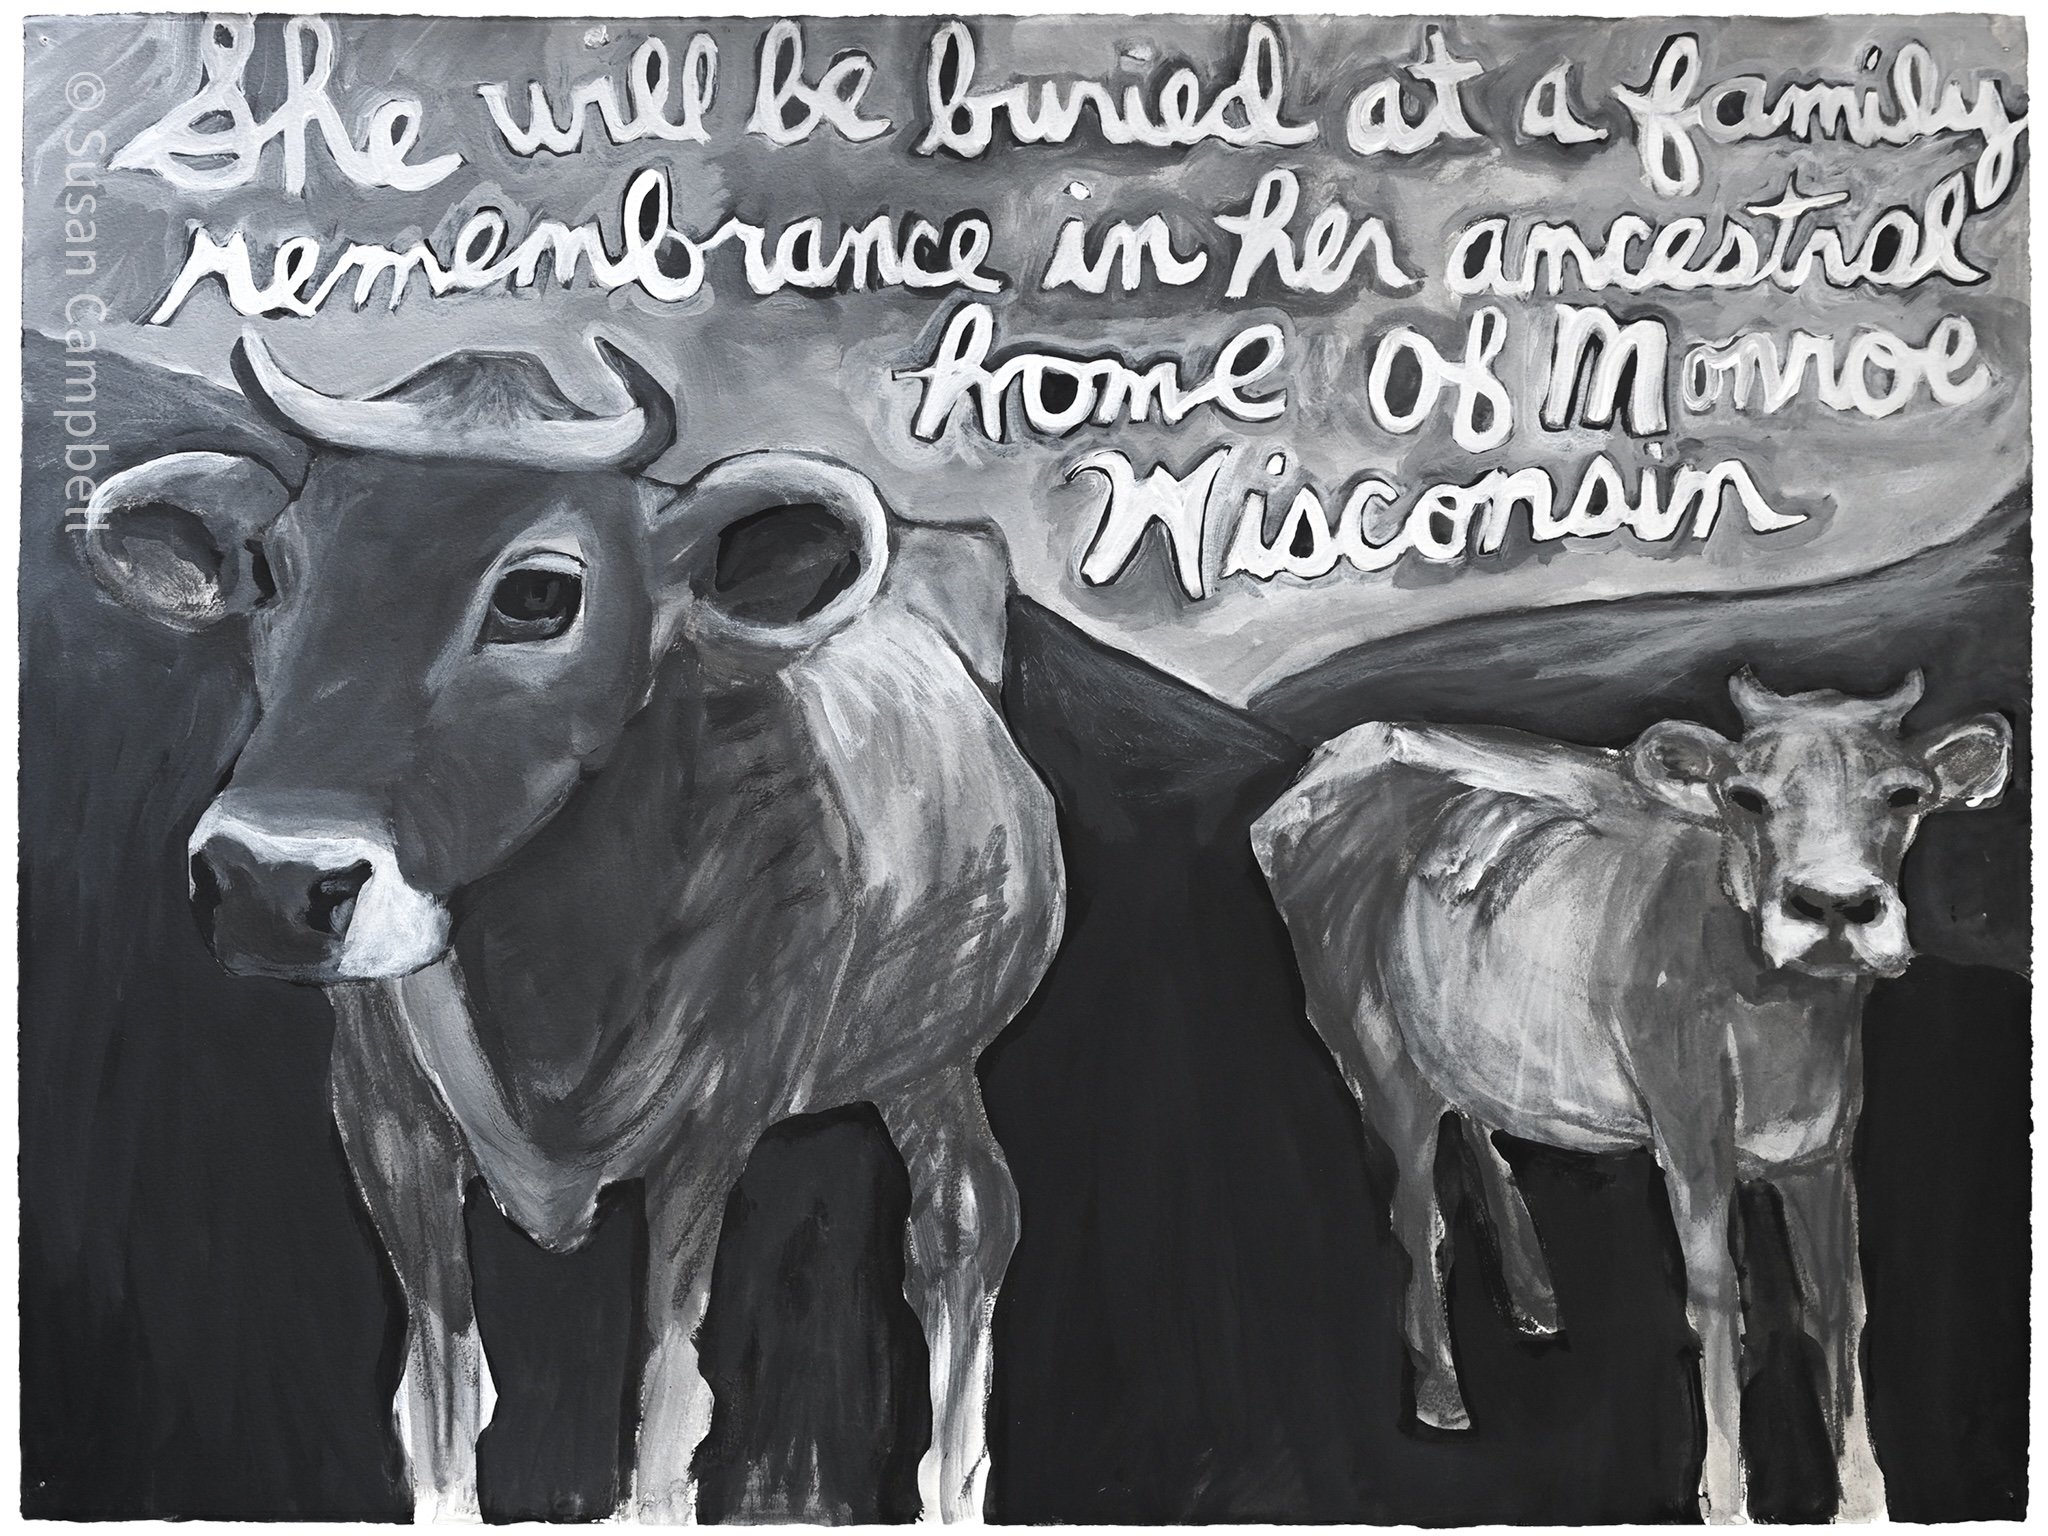 She will be buried at a family
remembrance in her ancestral
home of Monroe
Wisconsin
© Susan Campbell